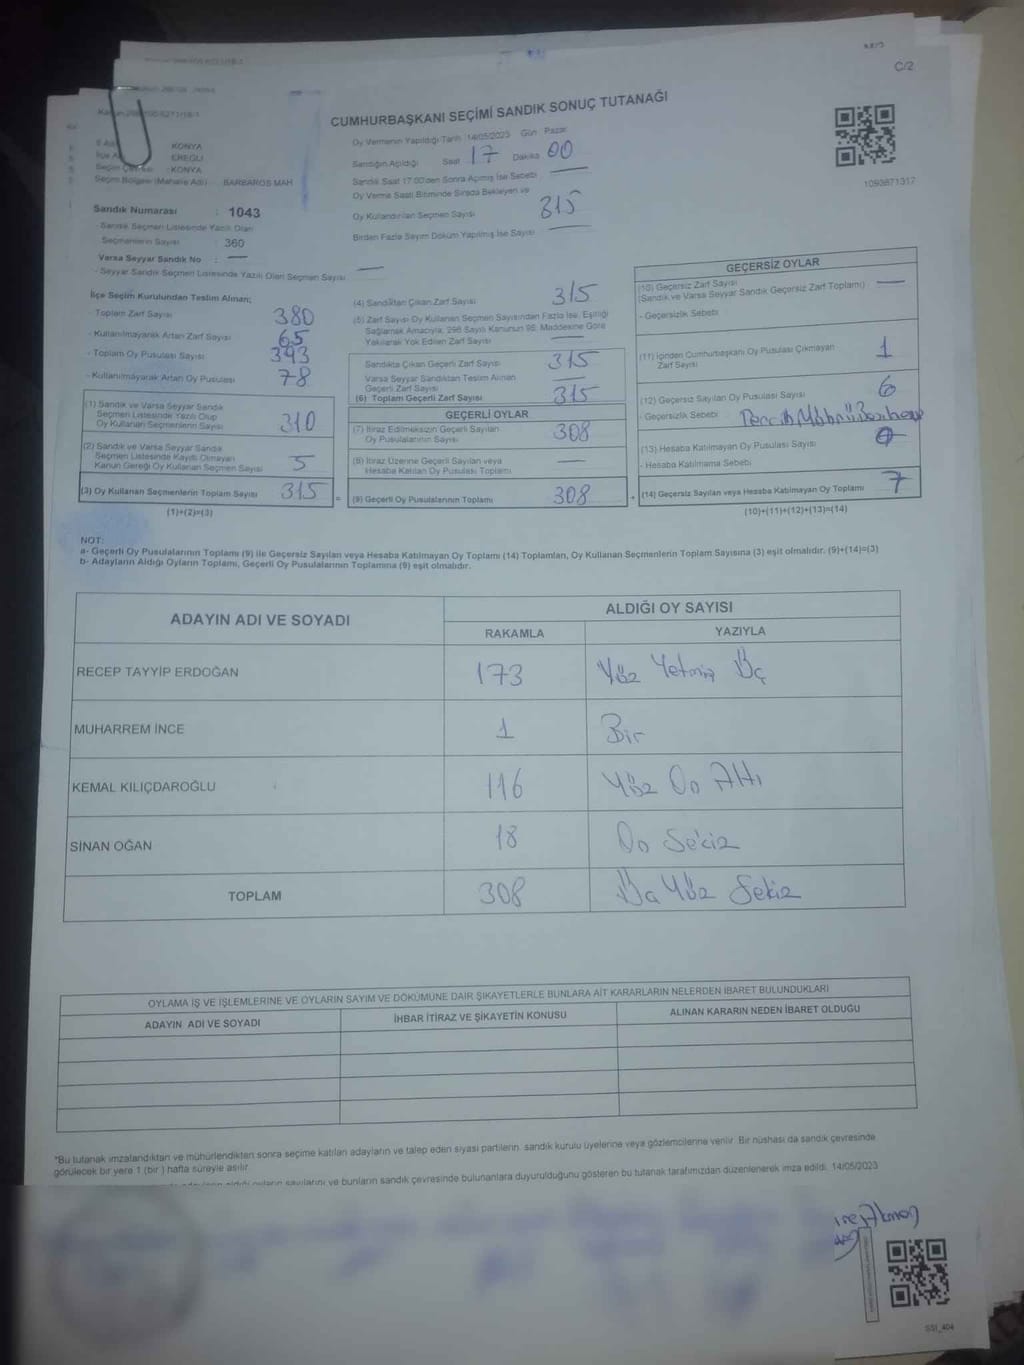 C/2
CUMHURBAŞKANI SEÇİMİ SANDIK SONUÇ TUTANAĞI
KONYA
EREĞLİ
KONYA
Seçim Bölgesi (Mahalle Adı) : BARBAROS MAH
Sandık Numarası : 1043
Sandık Seçmen Listesinde Yazılı Olan
Seçmenlerin Sayısı : 360
Varsa Seyyar Sandık No : —
- Seyyar Sandık Seçmen Listesinde Yazılı Olan Seçmen Sayısı —
Oy Vermenin Yapıldığı Tarih :14/05/2023 Gün : Pazar
Sandığın Açıldığı Saat 17 Dakika 00
Sandık Saat 17:00'den Sonra Açılmış İse Sebebi —
Oy Verme Saati Bitiminde Sırada Bekleyen ve
Oy Kullandırılan Seçmen Sayısı 315
Birden Fazla Sayım Döküm Yapılmış İse Sayısı —
1093871317
İlçe Seçim Kurulundan Teslim Alınan;
- Toplam Zarf Sayısı 380
- Kullanılmayarak Artan Zarf Sayısı 65
- Toplam Oy Pusulası Sayısı 393
- Kullanılmayarak Artan Oy Pusulası 78
(1) Sandık ve Varsa Seyyar Sandık
Seçmen Listesinde Yazılı Olup
Oy Kullanan Seçmenlerin Sayısı 310
(2) Sandık ve Varsa Seyyar Sandık
Seçmen Listesinde Kayıtlı Olmayan
Kanun Gereği Oy Kullanan Seçmen Sayısı 5
(3) Oy Kullanan Seçmenlerin Toplam Sayısı 315 =
(1)+(2)=(3)
(4) Sandıktan Çıkan Zarf Sayısı 315
(5) Zarf Sayısı Oy Kullanan Seçmen Sayısından Fazla İse, Eşitliği
Sağlamak Amacıyla, 298 Sayılı Kanunun 98. Maddesine Göre
Yakılarak Yok Edilen Zarf Sayısı —
Sandıkta Çıkan Geçerli Zarf Sayısı 315
Varsa Seyyar Sandıktan Teslim Alınan
Geçerli Zarf Sayısı —
(6) Toplam Geçerli Zarf Sayısı 315
GEÇERLİ OYLAR
(7) İtiraz Edilmeksizin Geçerli Sayılan
Oy Pusulalarının Sayısı 308
(8) İtiraz Üzerine Geçerli Sayılan veya
Hesaba Katılan Oy Pusulası Toplamı —
(9) Geçerli Oy Pusulalarının Toplamı 308 +
GEÇERSİZ OYLAR
(10) Geçersiz Zarf Sayısı
(Sandık ve Varsa Seyyar Sandık Geçersiz Zarf Toplamı) —
- Geçersizlik Sebebi
(11) İçinden Cumhurbaşkanı Oy Pusulası Çıkmayan
Zarf Sayısı 1
(12) Geçersiz Sayılan Oy Pusulası Sayısı 6
- Geçersizlik Sebebi
(13) Hesaba Katılmayan Oy Pusulası Sayısı
- Hesaba Katılmama Sebebi
(14) Geçersiz Sayılan veya Hesaba Katılmayan Oy Toplamı 7
(10)+(11)+(12)+(13)=(14)
NOT:
a- Geçerli Oy Pusulalarının Toplamı (9) ile Geçersiz Sayılan veya Hesaba Katılmayan Oy Toplamı (14) Toplamları, Oy Kullanan Seçmenlerin Toplam Sayısına (3) eşit olmalıdır. (9)+(14)=(3)
b- Adayların Aldığı Oyların Toplamı, Geçerli Oy Pusulalarının Toplamına (9) eşit olmalıdır.
ADAYIN ADI VE SOYADI ALDIĞI OY SAYISI
RAKAMLA YAZIYLA
RECEP TAYYİP ERDOĞAN 173 Yüz Yetmiş Üç
MUHARREM İNCE 1 Bir
KEMAL KILIÇDAROĞLU 116 Yüz On Altı
SİNAN OĞAN 18 On Sekiz
TOPLAM 308 Üç Yüz Sekiz
OYLAMA İŞ VE İŞLEMLERİNE VE OYLARIN SAYIM VE DÖKÜMÜNE DAİR ŞİKAYETLERLE BUNLARA AİT KARARLARIN NELERDEN İBARET BULUNDUKLARI
ADAYIN ADI VE SOYADI İHBAR İTİRAZ VE ŞİKAYETİN KONUSU ALINAN KARARIN NEDEN İBARET OLDUĞU
*Bu tutanak imzalandıktan ve mühürlendikten sonra seçime katılan adayların ve talep eden siyasi partilerin, sandık kurulu üyelerine veya gözlemcilerine verilir. Bir nüshası da sandık çevresinde
görülecek bir yere 1 (bir ) hafta süreyle asılır.
aldığı oyların sayılarını ve bunların sandık çevresinde bulunanlara duyurulduğunu gösteren bu tutanak tarafımızdan düzenlenerek imza edildi. 14/05/2023
SSI_404